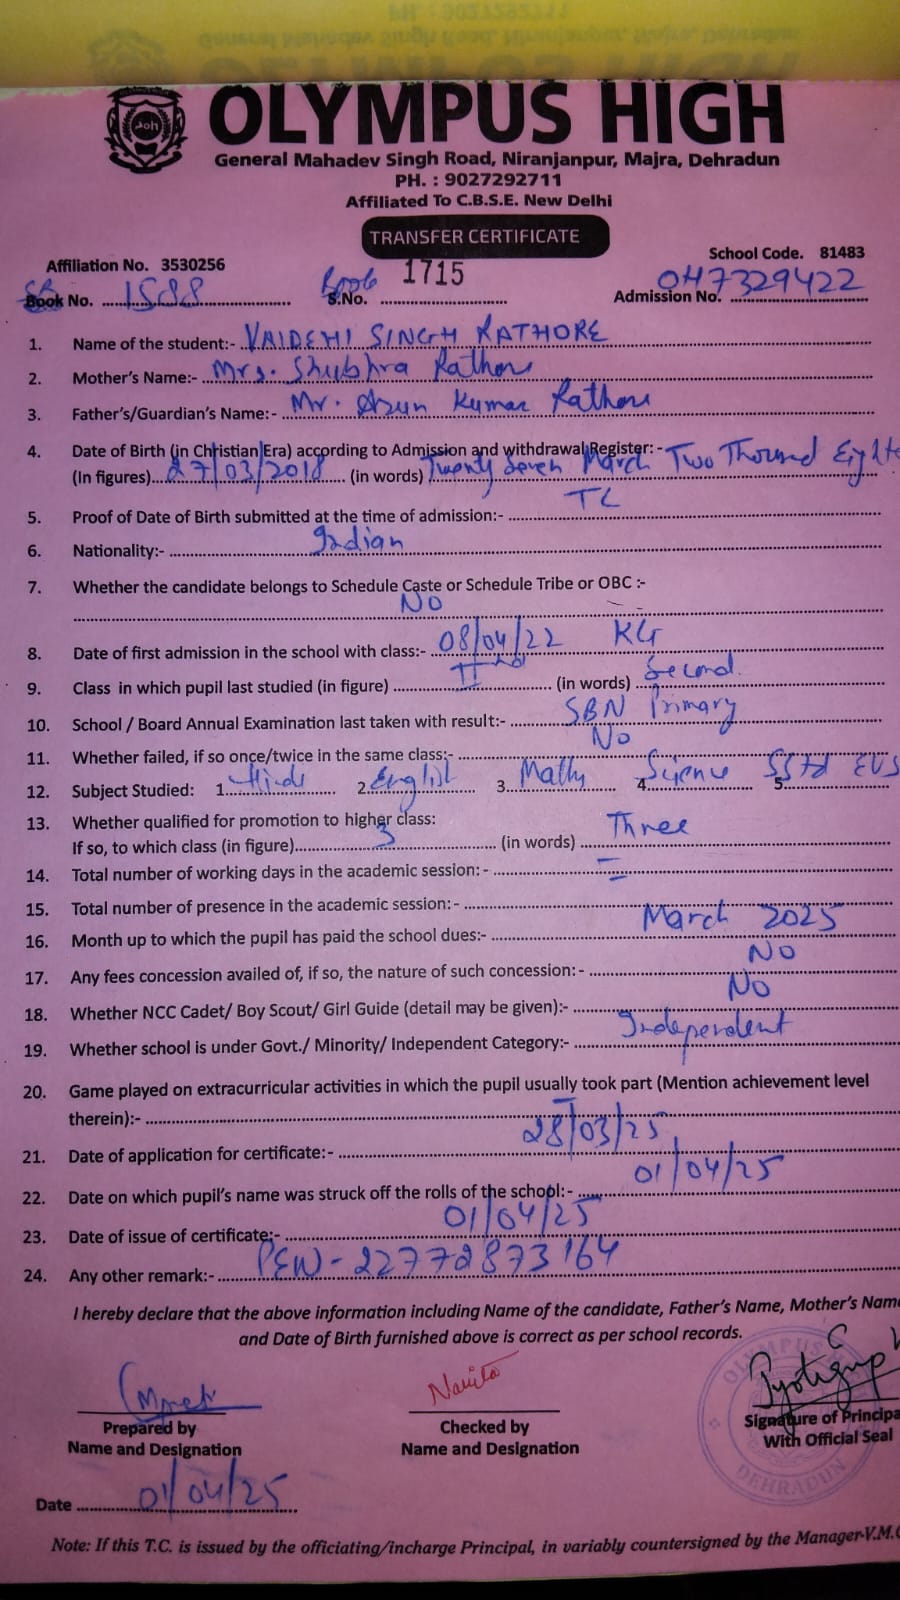 OLYMPUS HIGH
General Mahadev Singh Road, Niranjanpur, Majra, Dehradun
PH. : 9027292711
Affiliated To C.B.S.E. New Delhi
TRANSFER CERTIFICATE
Affiliation No. 3530256 School Code. 81483
Book No. 1588 Book S.No. 1715 Admission No. 047329422
1. Name of the student:- VAIDEHI SINGH RATHORE
2. Mother's Name:- Mrs. Shubhra Rathore
3. Father's/Guardian's Name:- Mr. Arun Kumar Rathore
4. Date of Birth (in Christian Era) according to Admission and withdrawal Register:-
(In figures) 27/03/2018 (in words) Twenty Seven March Two Thousd Eighte
5. Proof of Date of Birth submitted at the time of admission:- TC
6. Nationality:- Indian
7. Whether the candidate belongs to Schedule Caste or Schedule Tribe or OBC :-
No
8. Date of first admission in the school with class:- 08/04/22 KG
9. Class in which pupil last studied (in figure) IInd (in words) Second
10. School / Board Annual Examination last taken with result:- SBN Primary
11. Whether failed, if so once/twice in the same class:- No
12. Subject Studied: 1. Hindi 2. English 3. Maths 4. Science 5. SStd EVS
13. Whether qualified for promotion to higher class:
If so, to which class (in figure) 3 (in words) Three
14. Total number of working days in the academic session: -
15. Total number of presence in the academic session: -
16. Month up to which the pupil has paid the school dues:- March 2025
17. Any fees concession availed of, if so, the nature of such concession: - No
18. Whether NCC Cadet/ Boy Scout/ Girl Guide (detail may be given):- No
19. Whether school is under Govt./ Minority/ Independent Category:- Independent
20. Game played on extracurricular activities in which the pupil usually took part (Mention achievement level
therein):-
21. Date of application for certificate:- 28/03/25
22. Date on which pupil's name was struck off the rolls of the school:- 01/04/25
23. Date of issue of certificate:- 01/04/25
24. Any other remark:- PEN-22772873164
I hereby declare that the above information including Name of the candidate, Father's Name, Mother's Name
and Date of Birth furnished above is correct as per school records.
Navita
Prepared by Checked by Signature of Principa
Name and Designation Name and Designation With Official Seal
DEHRADUN
Date 01/04/25
Note: If this T.C. is issued by the officiating/incharge Principal, in variably countersigned by the Manager-V.M.C